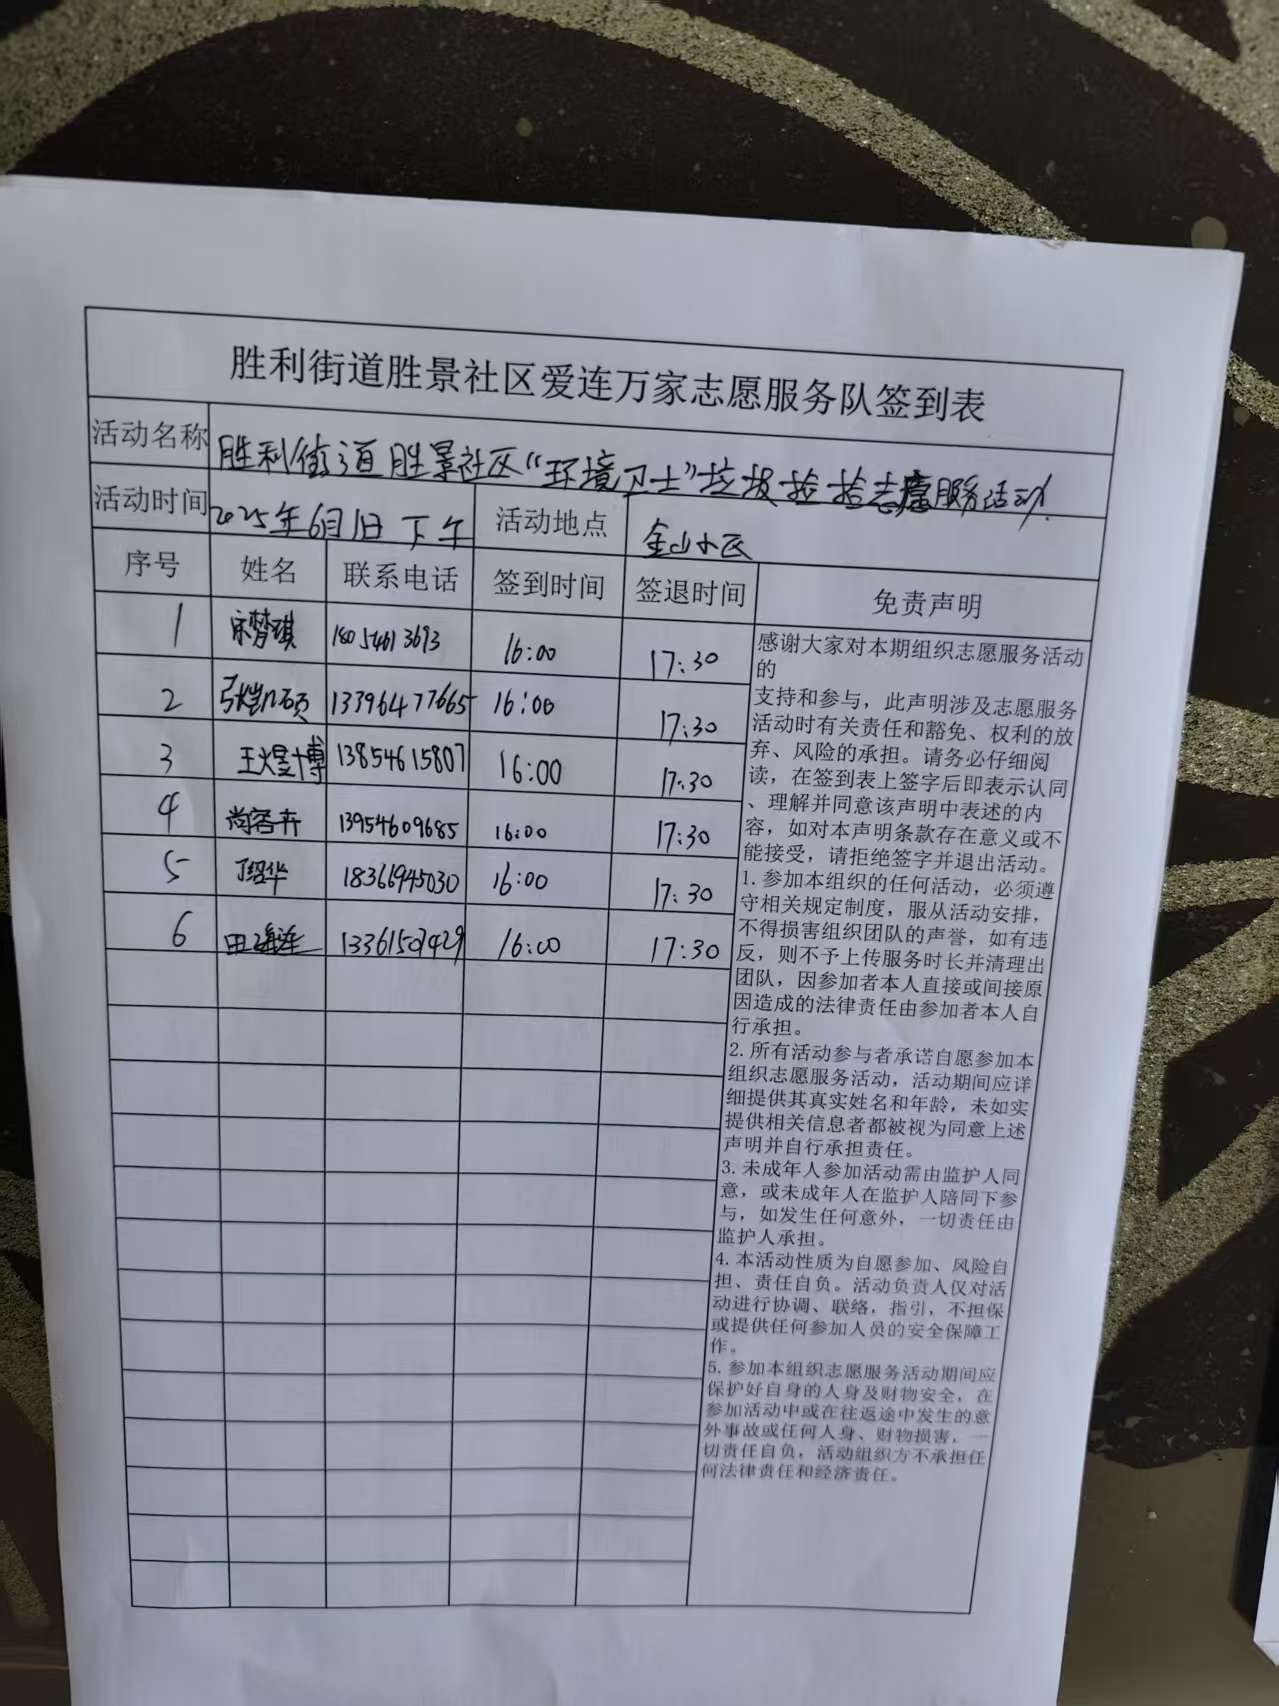 胜利街道胜景社区爱连万家志愿服务队签到表
活动名称 胜利街道胜景社区“环境卫士”垃圾捡拾志愿服务活动
活动时间 2025年6月1日下午 活动地点 金山小区
序号 姓名 联系电话 签到时间 签退时间 免责声明
1 宋梦琪 18054613693 16:00 17:30
2 张凯硕 13396477665 16:00 17:30
3 王煜博 13854615807 16:00 17:30
4 尚容卉 13954609685 16:00 17:30
5 丁绍华 18366945030 16:00 17:30
6 田海连 13361507429 16:00 17:30
感谢大家对本期组织志愿服务活动
的
支持和参与，此声明涉及志愿服务
活动时有关责任和豁免、权利的放
弃、风险的承担。请务必仔细阅
读，在签到表上签字后即表示认同
、理解并同意该声明中表述的内
容，如对本声明条款存在意义或不
能接受，请拒绝签字并退出活动。
1.参加本组织的任何活动，必须遵
守相关规定制度，服从活动安排，
不得损害组织团队的声誉，如有违
反，则不予上传服务时长并清理出
团队，因参加者本人直接或间接原
因造成的法律责任由参加者本人自
行承担。
2.所有活动参与者承诺自愿参加本
组织志愿服务活动，活动期间应详
细提供其真实姓名和年龄，未如实
提供相关信息者都被视为同意上述
声明并自行承担责任。
3.未成年人参加活动需由监护人同
意，或未成年人在监护人陪同下参
与，如发生任何意外，一切责任由
监护人承担。
4.本活动性质为自愿参加、风险自
担、责任自负。活动负责人仅对活
动进行协调、联络，指引，不担保
或提供任何参加人员的安全保障工
作。
5.参加本组织志愿服务活动期间应
保护好自身的人身及财物安全，在
参加活动中或在往返途中发生的意
外事故或任何人身、财物损害，一
切责任自负，活动组织方不承担任
何法律责任和经济责任。